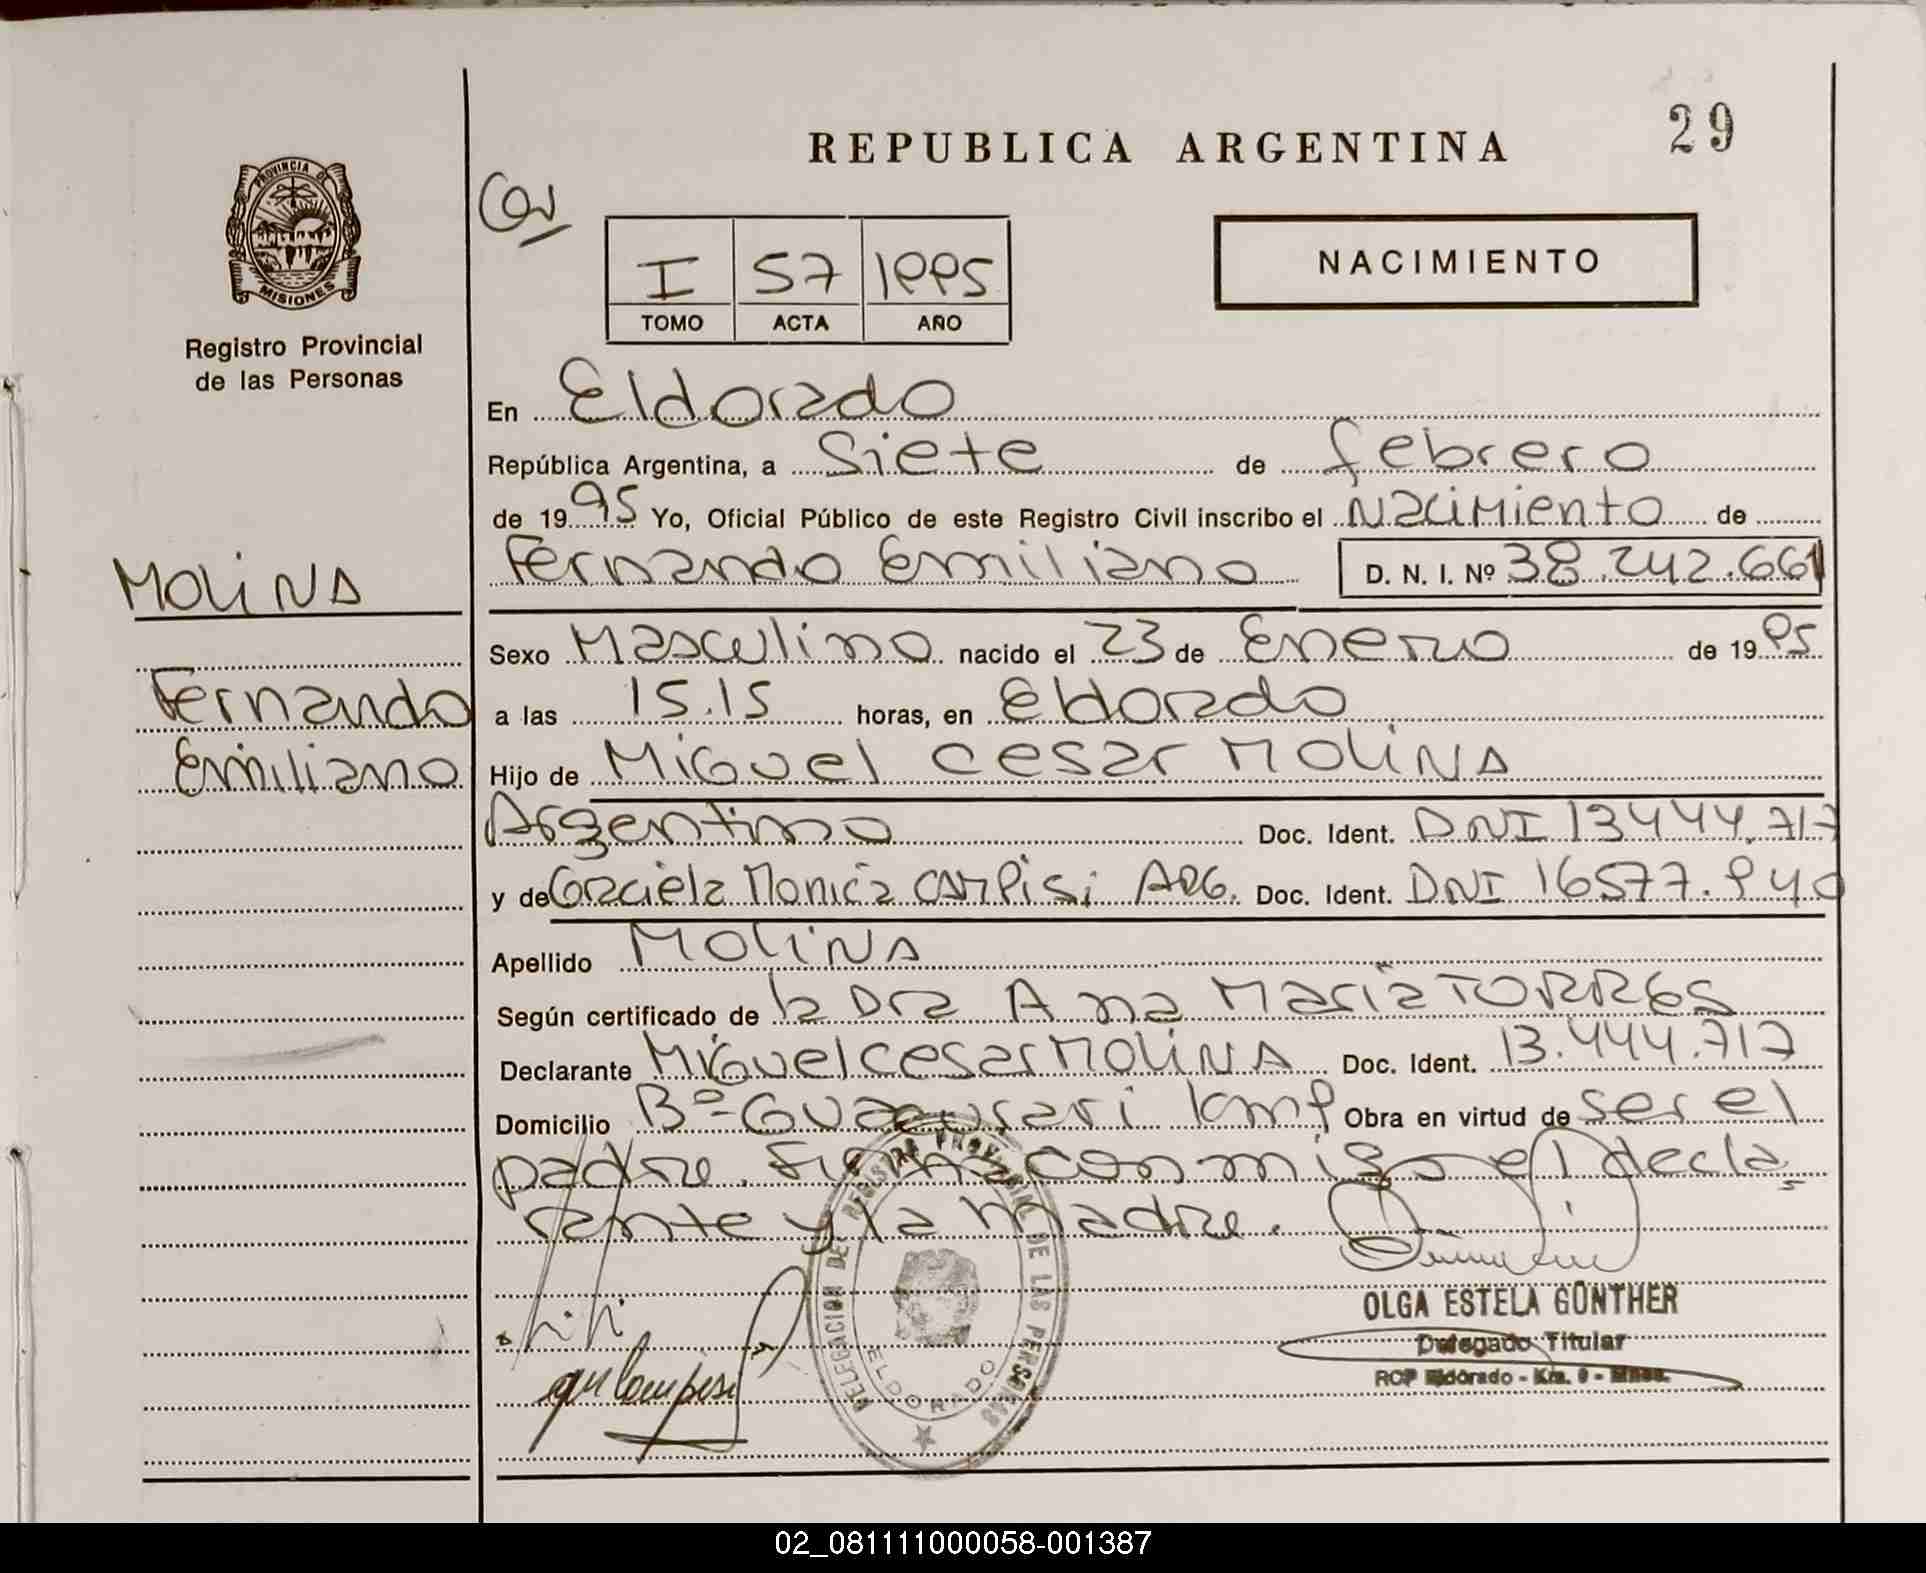 29
REPUBLICA ARGENTINA
PROVINCIA DE
MISIONES
Registro Provincial
de las Personas
NACIMIENTO
I 57 1995
TOMO ACTA AÑO
En Eldorado
República Argentina, a Siete de febrero
de 1995 Yo, Oficial Público de este Registro Civil inscribo el Nacimiento de
Fernando Emiliano D. N. I. Nº 38.242.661
MOLINA
Sexo Masculino nacido el 23 de Enero de 1995
Fernando
a las 15.15 horas, en Eldorado
Emiliano
Hijo de Miguel Cesar MOLINA
Argentino Doc. Ident. DNI 13444.717
y de Graciela Monica CAMPISI ARG. Doc. Ident. DNI 16577.940
Apellido MOLINA
Según certificado de la Dra Ana Maria TORRES
Declarante Miguel Cesar MOLINA Doc. Ident. 13.444.717
Domicilio Bº- Guacurari km9 Obra en virtud de ser el
padre. Firma conmigo el decla
rante y la madre.
DELEGACION DEL REGISTRO PROVINCIAL DE LAS PERSONAS
ELDORADO
OLGA ESTELA GÜNTHER
Delegado Titular
RCP Eldorado - Km. 9 - Mnes.
02_081111000058-001387